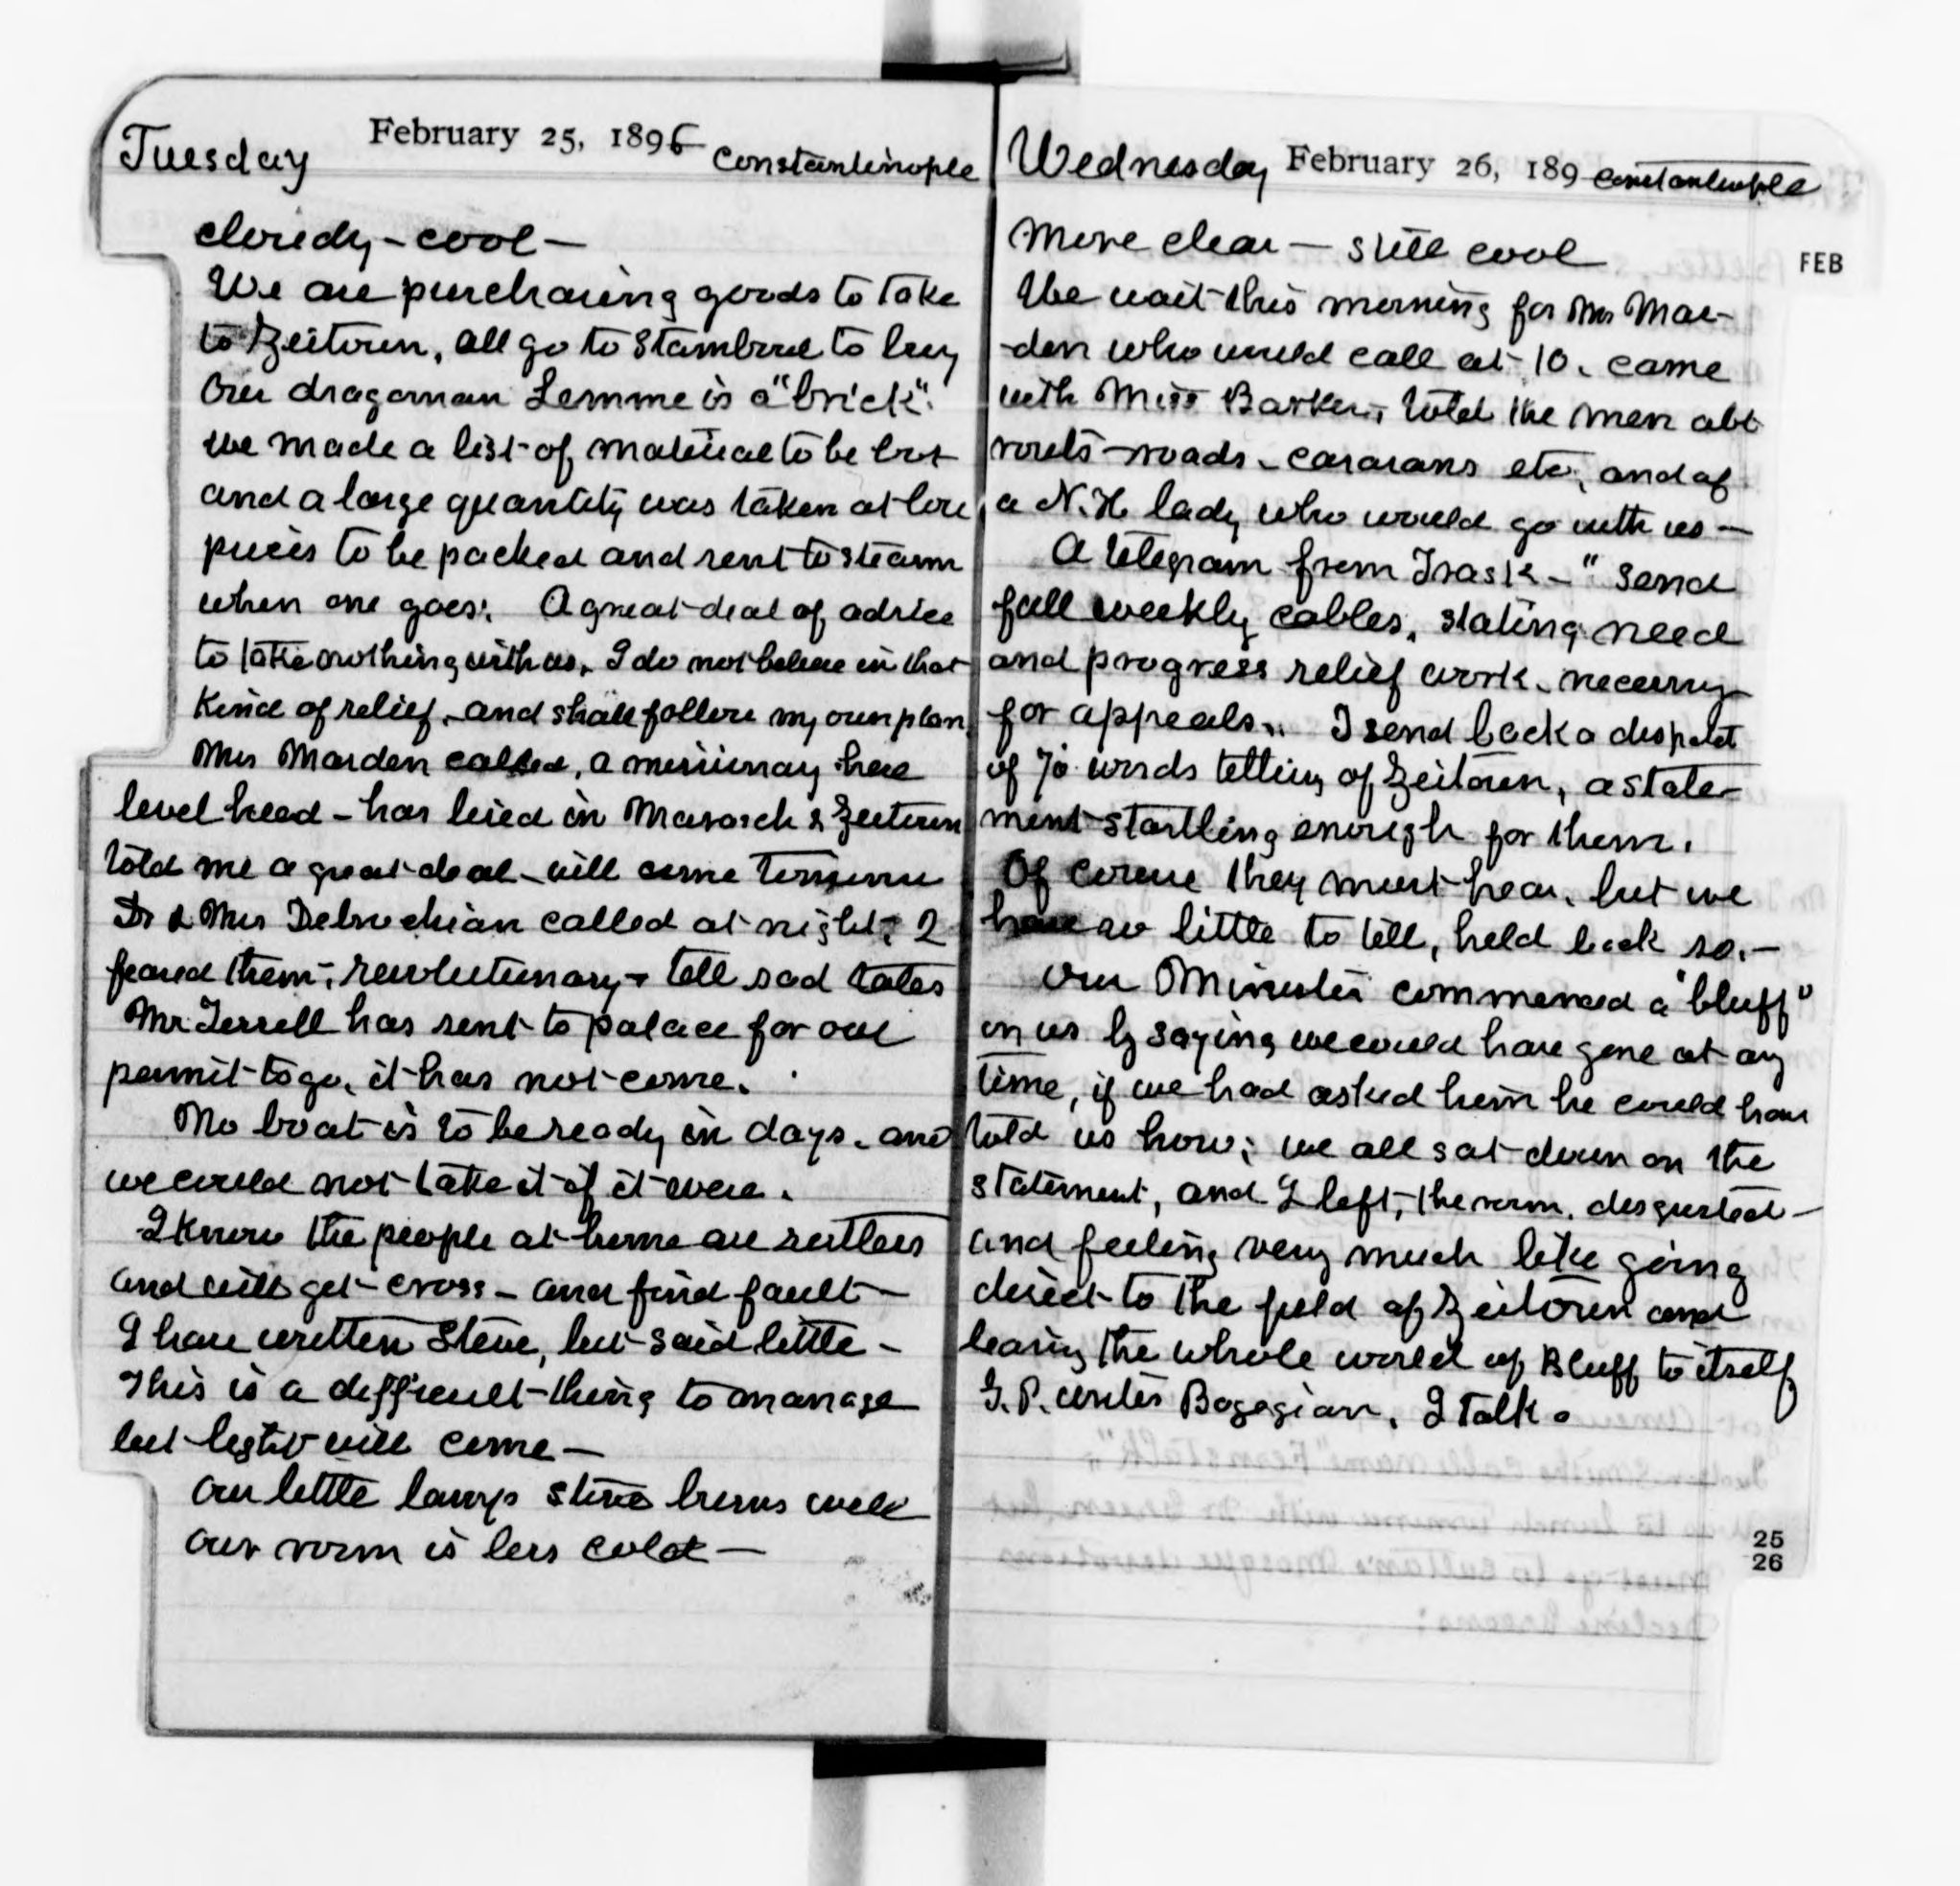 Tuesday February 25, 1896 Constantinople
cloudy - cool -
We are purchasing goods to take
to Zeitoun, all go to Stamboul to buy
Our dragoman Lemme is a "brick".
we made a list of material to be bot
and a large quantity was taken at low
prices to be packed and sent to steam
when one goes. A great deal of advice
to take nothing with us, I do not believe in that
kind of relief, and shall follow my own plan
Mrs Marden called, a missionary here
level head - has lived in Marasch & Zeitoun
told me a great deal - will come
Dr & Mrs called at night, I
feared them, revolutionary - tell sad tales
Mr Terrell has sent to palace for our
permit to go, it has not come.
No boat is to be ready in days - and
we could not take it if it were.
I know the people at home are restless
and will get cross - and find fault -
I have written Steve, but said little -
This is a difficult thing to manage
but light will come -
Our little lamp stove burns well
our room is less cold -
Wednesday February 26, 189 Constantinople
More clear - still cool
We wait this morning for Mrs Mar-
-den who would call at 10. came
with Miss Barker, told the men abt
routs - roads - caravans etc, and of
a N. H. lady who would go with us -
A telegram from Trask - "Send
full weekly cables, stating need
and progress relief work - necessary
for appeals". I send back a dispatch
of 70 words telling of Zeitoun, a state-
ment startling enough for them.
Of course they must hear, but we
have so little to tell, held back so. -
Our Minister commenced a "bluff"
on us by saying we could have gone at any
time, if we had asked him he could have
told us how; we all sat down on the
statement, and I left, the room, disgusted -
and feeling very much like going
direct to the field of Zeitoun and
leaving the whole world of Bluff to itself
G. P. writes Bogagian. I talk.
FEB
25
26